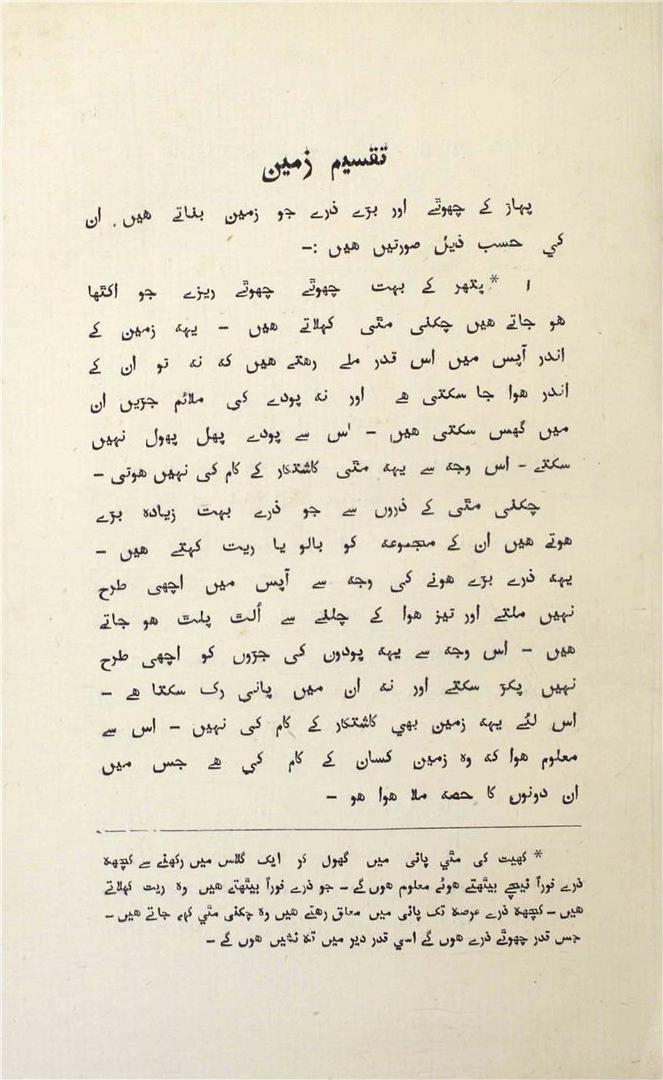 تقسیم زمین
پہاڑ کے چھوٹے اور بڑے ذرے جو زمین بناتے ھیں ۔ ان
کي حسب ذیل صورتیں ھیں :—
۱ * پتھر کے بہت چھوٹے چھوٹے ریزے جو اکٹھا
ھو جاتے ھیں چکنی مٹی کہلاتے ھیں — یہہ زمین کے
اندر آپس میں اس قدر ملے رھتے ھیں کہ نہ تو ان کے
اندر ھوا جا سکتی ھے اور نہ پودے کی ملائم جڑیں ان
میں گھس سکتی ھیں — اس سے پودے پھل پھول نہیں
سکتے — اس وجہ سے یہہ مٹی کاشتکار کے کام کی نہیں ھوتی —
چکنی مٹی کے ذروں سے جو ذرے بہت زیادہ بڑے
ھوتے ھیں ان کے مجموعہ کو بالو یا ریت کہتے ھیں —
یہہ ذرے بڑے ھونے کی وجہ سے آپس میں اچھی طرح
نہیں ملتے اور تیز ھوا کے چلنے سے اُلٹ پلٹ ھو جاتے
ھیں — اس وجہ سے یہہ پودوں کی جڑوں کو اچھی طرح
نہیں پکڑ سکتے اور نہ ان میں پانی رک سکتا ھے —
اس لئے یہہ زمین بھي کاشتکار کے کام کی نہیں — اس سے
معلوم ھوا کہ وہ زمین کسان کے کام کي ھے جس میں
ان دونوں کا حصہ ملا ھوا ھو —
* کھیت کی مٹي پانی میں گھول کر ایک گلاس میں رکھنے سے کچھہ
ذرے فوراً نیچے بیٹھتے ھوئے معلوم ھوں گے — جو ذرے فوراً بیٹھتے ھیں وہ ریت کہلاتے
ھیں — کچھہ ذرے عرصہ تک پانی میں معلق رھتے ھیں وہ چکنی مٹي کہے جاتے ھیں —
جس قدر چھوٹے ذرے ھوں گے اسي قدر دیر میں تہ نشیں ھوں گے —